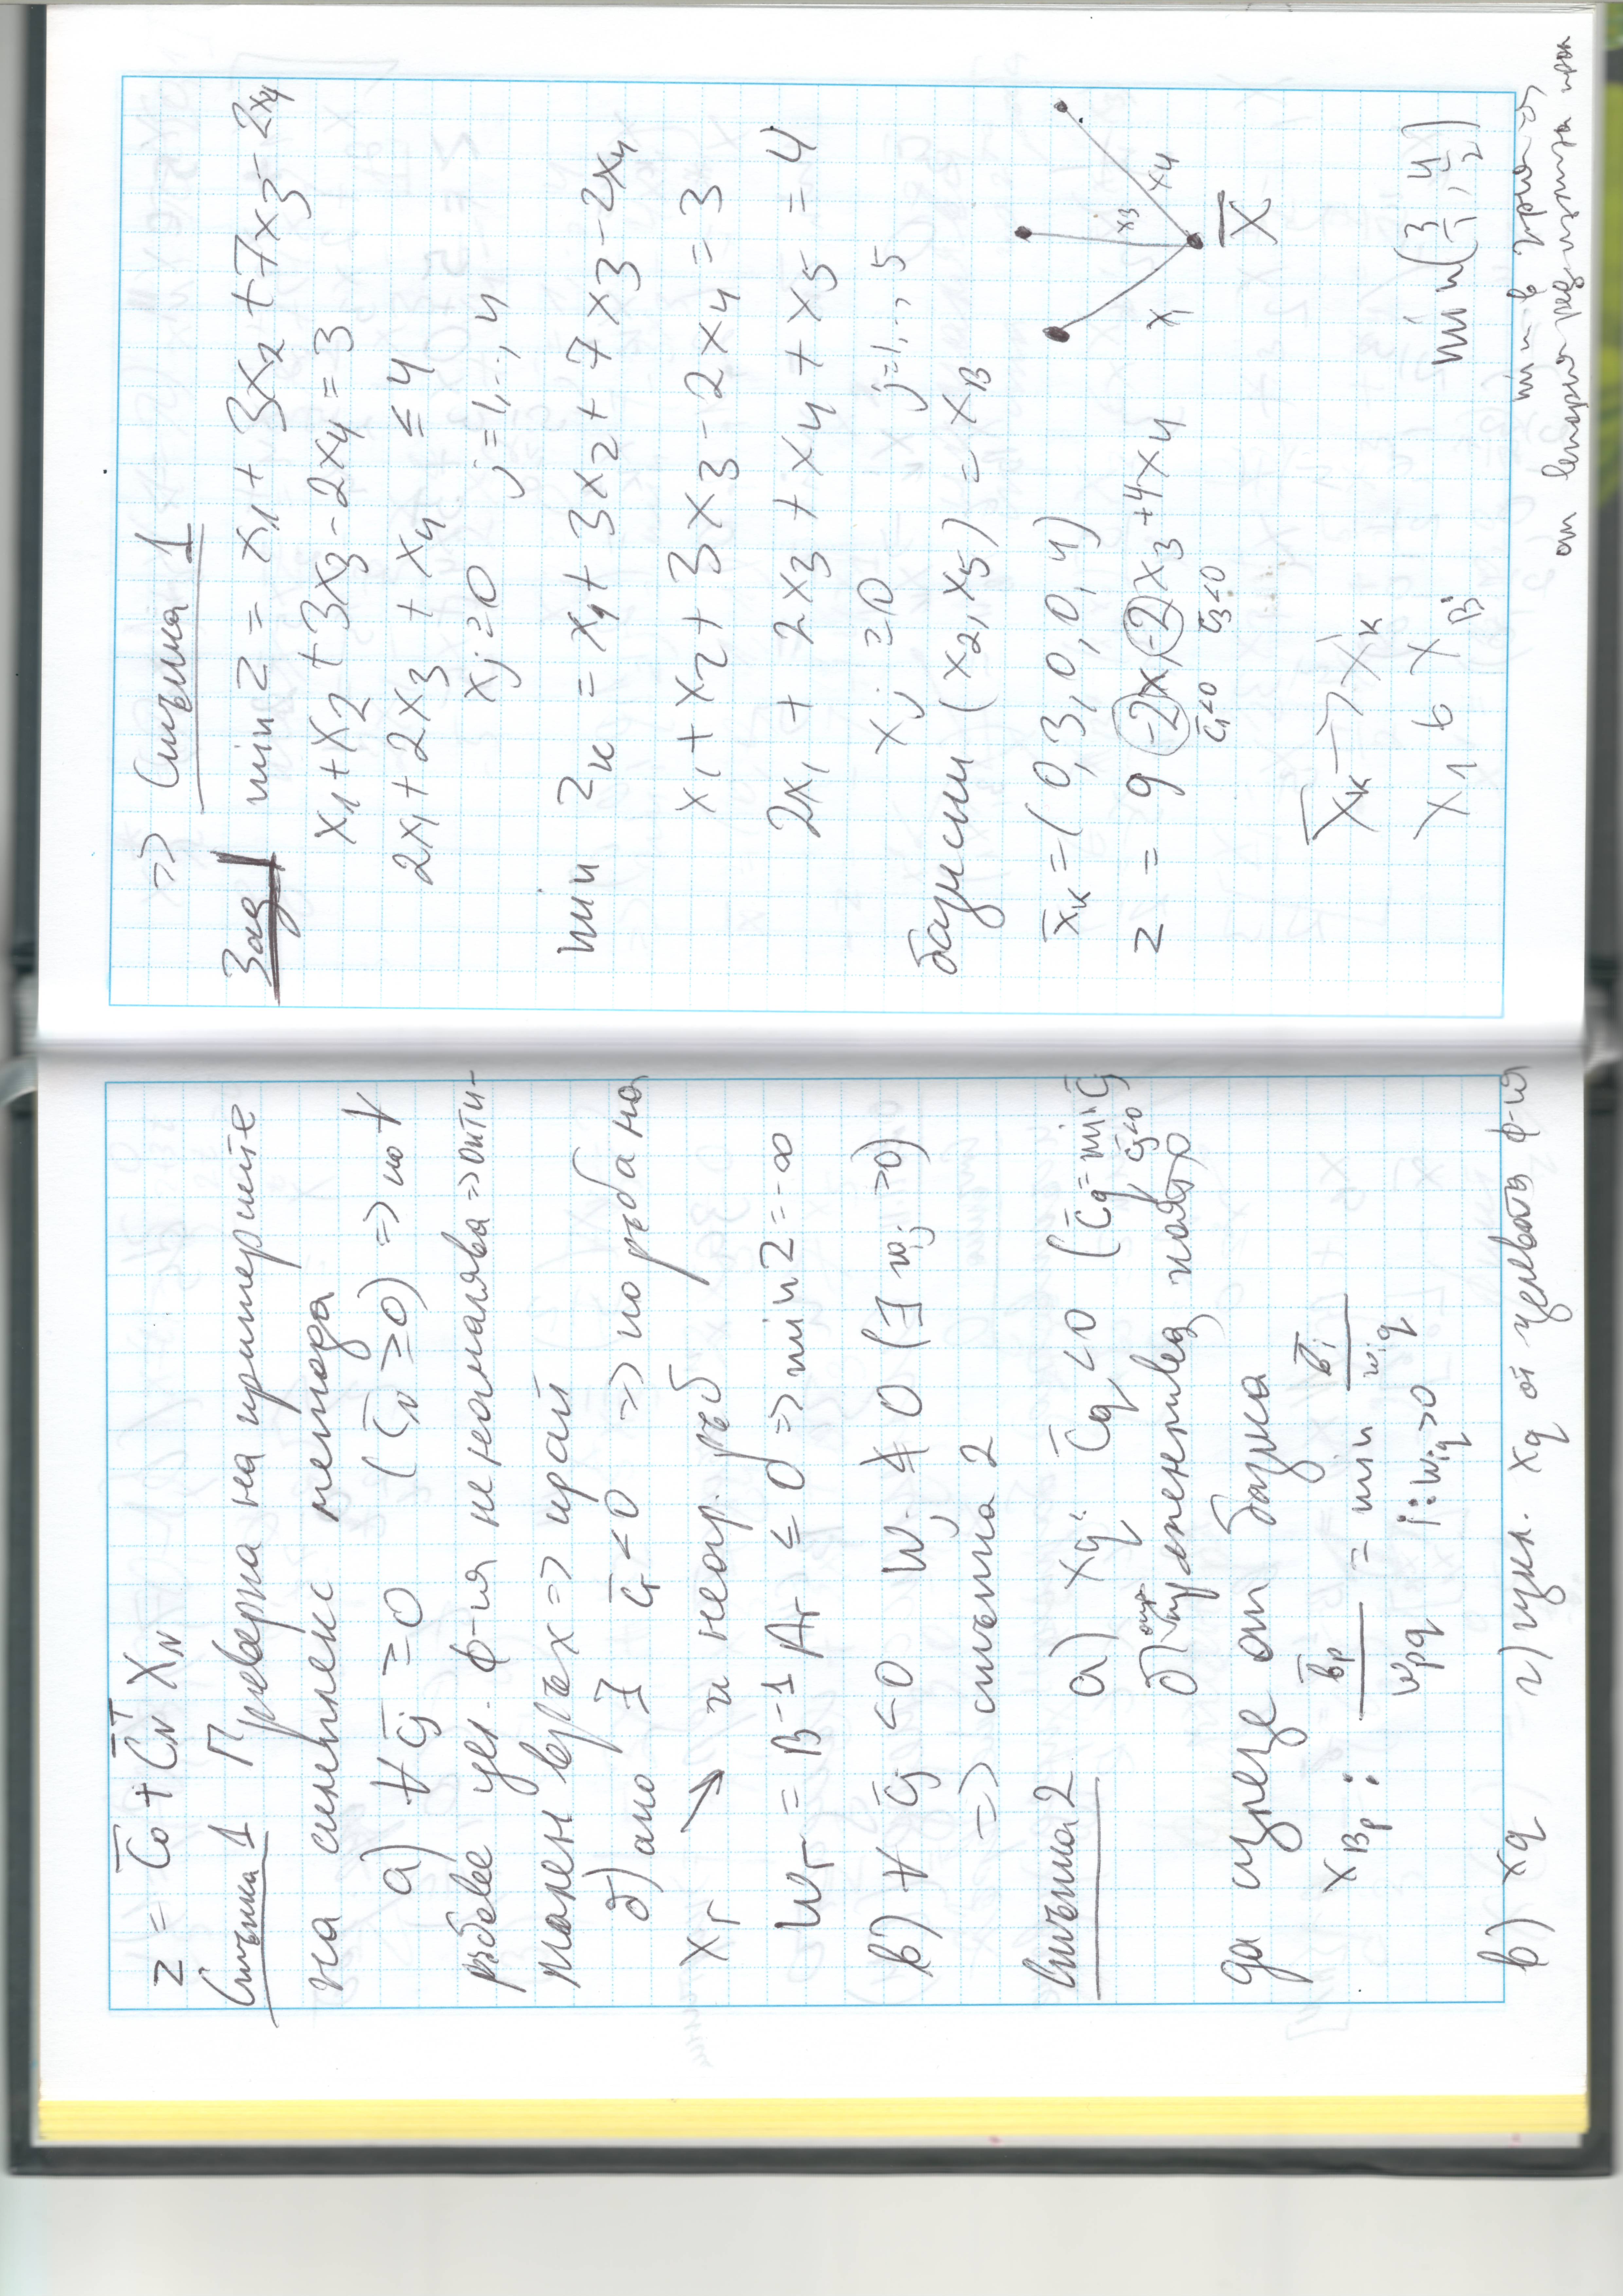 z = c̄₀ + c̄ₙᵀ xₙ
Стъпка 1 Проверка на критериите
на симплекс метода
а) ∀ c̄ⱼ ≥ 0 (c̄ₙ ≥ 0) => по ∀
ръбове цел. ф-ия не намалява => опти-
мален връх => край
б) ако ∃ c̄ᵣ < 0 => по ръба на
xᵣ ↘ и неогр. ръб
Wᵣ = B⁻¹ Aᵣ ≤ 0 => min z = -∞
в) ∀ c̄ⱼ < 0 Wⱼ ≰ 0 (∃ wᵢⱼ > 0)
=> стъпка 2
Стъпка 2 а) x_q: c̄_q < 0 (c̄_q = min c̄ⱼ
c̄ⱼ<0
б)
да излезе от базиса
x_Bp : b̄p / w_pq = min b̄ᵢ / wᵢq
i: wᵢq > 0
в) x_q г) цикл. x_q от целевата ф-ия
=> Стъпка 1
Зад 1 min z = x₁ + 3x₂ + 7x₃ - 2x₄
x₁ + x₂ + 3x₃ - 2x₄ = 3
2x₁ + 2x₃ + x₄ ≤ 4
xⱼ ≥ 0 j = 1,.., 4
min zₖ = x₁ + 3x₂ + 7x₃ - 2x₄
x₁ + x₂ + 3x₃ - 2x₄ = 3
2x₁ + 2x₃ + x₄ + x₅ = 4
xⱼ ≥ 0 j = 1,.., 5
базисни (x₂, x₅) = x_B
x̄ₖ = (0, 3, 0, 0, 4)
z = 9 (-2)x₁ (-2)x₃ + 4x₄
c̄₁<0 c̄₃<0
x₁ x₃ x₄
x̄
x̄ₖ -> xₖ
x₁ в x_B min (3/1, 4/2)